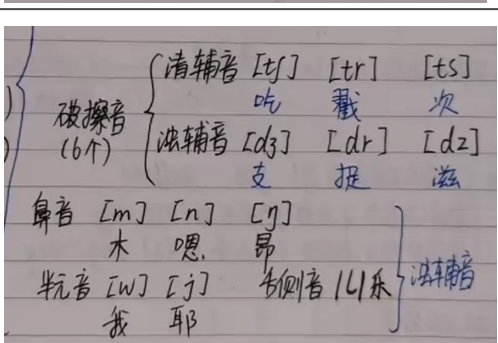 清辅音 [tʃ] [tr] [ts]
吃 戳 次
破擦音
(6个)
浊辅音 [dʒ] [dr] [dz]
支 捉 滋
鼻音 [m] [n] [ŋ]
木 嗯 昂
半元音 [w] [j] 舌侧音 [L] 乐
我 耶
浊辅音